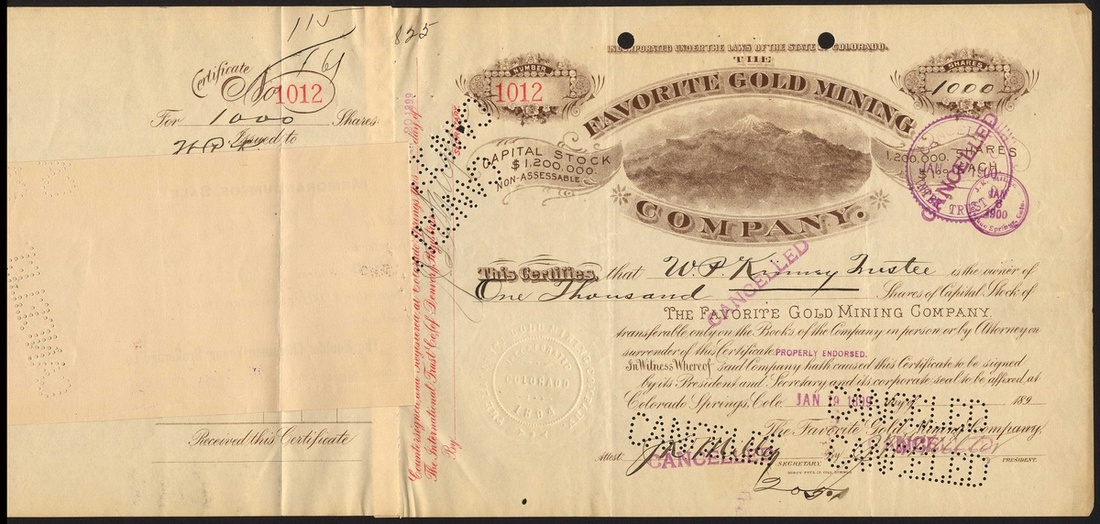 115
825
Certificate
No
1012
For 1000 Shares
Issued to
W P
Received this Certificate
Countersigned and registered at Colorado Springs this day of
The International Trust Co. of Denver, Registrar
By
INCORPORATED UNDER THE LAWS OF THE STATE OF COLORADO.
THE
NUMBER
1012
SHARES
1000
FAVORITE GOLD MINING
COMPANY.
CAPITAL STOCK
$1,200,000.
NON-ASSESSABLE
1,200,000. SHARES
EACH
CANCELLED
TRUST
JAN
8
1900
This Certifies, that W P Kinney Trustee is the owner of
One Thousand Shares of Capital Stock of
THE FAVORITE GOLD MINING COMPANY.
transferable only on the Books of the Company in person or by Attorney on
surrender of this Certificate PROPERLY ENDORSED.
In Witness Whereof said Company hath caused this Certificate to be signed
by its President and Secretary and its corporate seal to be affixed, at
Colorado Springs, Colo. JAN 19 1899 day of 189
The Favorite Gold Mining Company,
CANCELLED
CANCELLED
CANCELLED
Attest
SECRETARY.
By
PRESIDENT.
COLORADO
1894